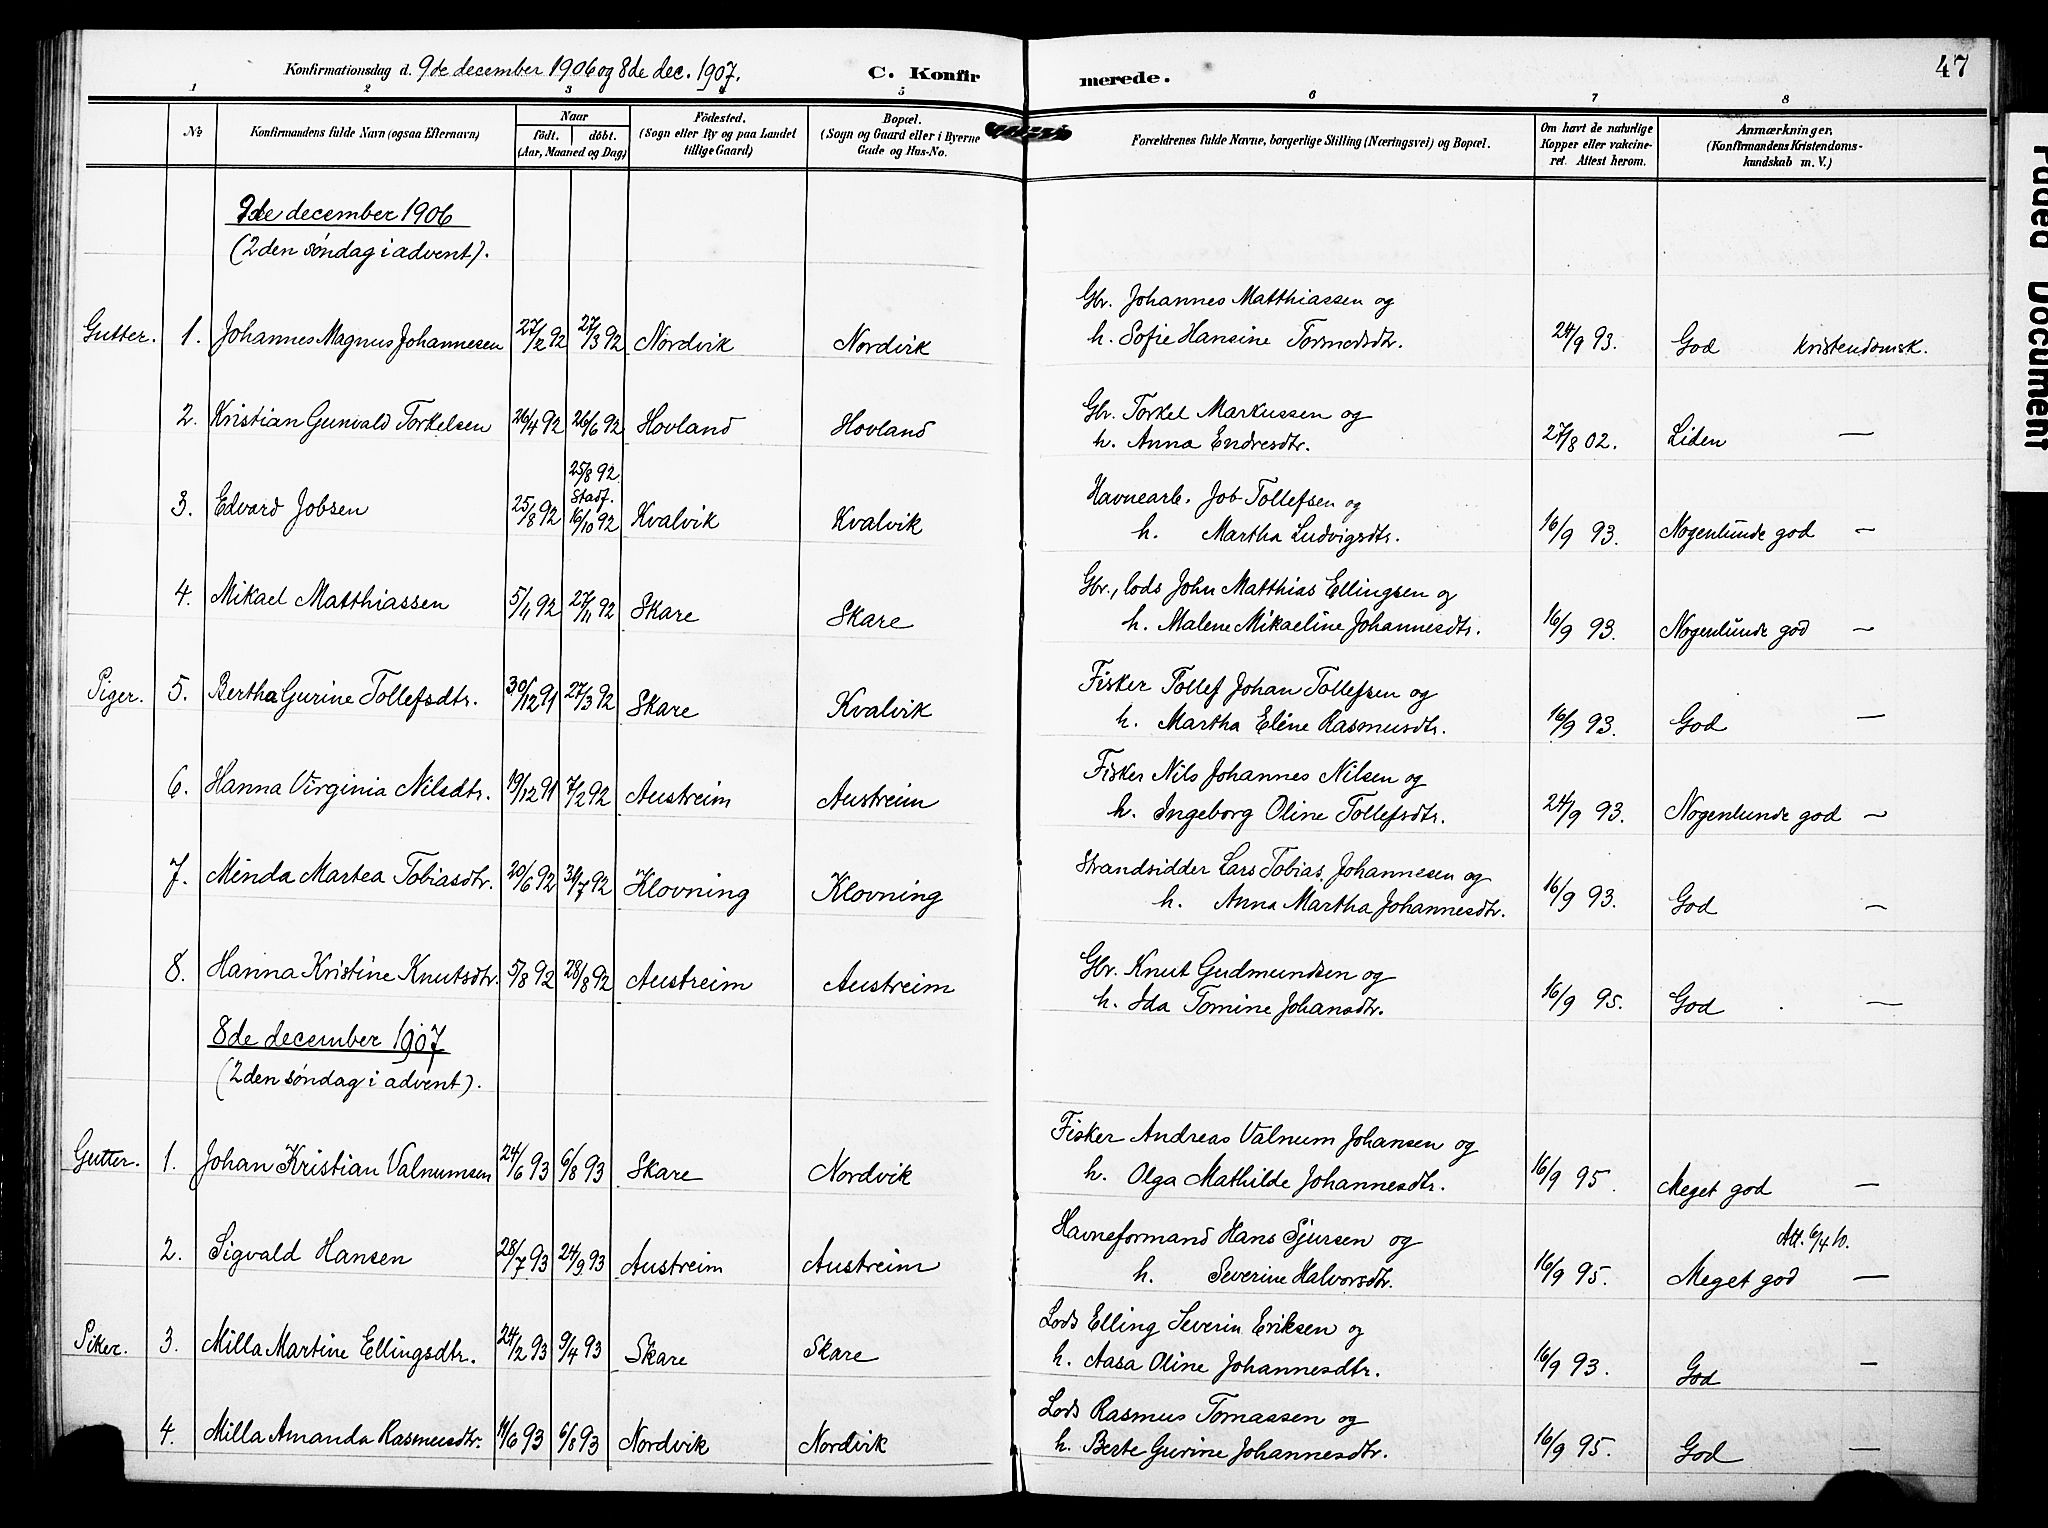 Konfirmationsdag d. 9de december 1906 og 8de dec. 1907. C. Konfirmerede. 47
1 2 3 4 5 6 7 8
No Konfirmandens fulde Navn (ogsaa Efternavn) Naar født. døbt. (Aar, Maaned og Dag) Födested. (Sogn eller By og paa Landet tillige Gaard) Bopæl. (Sogn og Gaard eller i Byerne Gade og Hus-No. Forældrenes fulde Navne, borgerlige Stilling (Næringsvei) og Bopæl. Om havt de naturlige Kopper eller vakcineret. Attest herom. Anmærkninger, (Konfirmandens Kristendomskundskab m. V.)
9de december 1906
(2den søndag i advent).
Gutter. 1. Johannes Magnus Johannesen 27/2 92 27/3 92 Nordvik Nordvik Gbr. Johannes Matthiassen og
h. Sofie Hansine Tormodsdtr. 24/9 93. God Kristendomsk.
2. Kristian Gunvald Torkelsen 26/4 92 26/6 92 Hovland Hovland Gbr. Torkel Markussen og
h. Anna Endresdtr. 27/8 02. Liden —
3. Edvard Jobsen 25/8 92 25/8 92. Stadf. 16/10 92 Kvalvik Kvalvik Havnearb. Job Tollefsen og
h. Martha Ludvigsdtr. 16/9 93. Nogenlunde god —
4. Mikael Matthiassen 5/11 92 27/11 92 Skare Skare Gbr., lods John Matthias Ellingsen og
h. Malene Mikaeline Johannesdtr. 16/9 93. Nogenlunde god —
Piger. 5. Bertha Gurine Tollefsdtr. 30/12 91 27/3 92 Skare Kvalvik Fisker Tollef Johan Tollefsen og
h. Martha Elene Rasmusdtr. 16/9 93. God —
6. Hanna Virginia Nilsdtr. 19/12 91 7/2 92 Austreim Austreim Fisker Nils Johannes Nilsen og
h. Ingeborg Oline Tollefsdtr. 24/9 93. Nogenlunde god —
7. Minda Martea Tobiasdtr. 20/6 92 31/7 92 Klovning Klovning Strandsidder Lars Tobias Johannesen og
h. Anna Martha Johannesdtr. 16/9 93. God —
8. Hanna Kristine Knutsdtr. 5/8 92 28/8 92 Austreim Austreim Gbr. Knut Gudmundsen og
h. Ida Tomine Johansdtr. 16/9 95. God —
8de december 1907
(2den søndag i advent).
Gutter. 1. Johan Kristian Valnumsen 24/6 93 6/8 93 Skare Nordvik Fisker Andreas Valnum Johansen og
h. Olga Mathilde Johannesdtr. 16/9 95. Meget god —
2. Sigvald Hansen 28/7 93 24/9 93 Austreim Austreim Havneformand Hans Sjursen og
h. Severine Halvorsdtr. 16/9 95. Att. 6/4 10. Meget god —
Piker. 3. Milla Martine Ellingsdtr. 24/2 93 9/4 93 Skare Skare Lods Elling Severin Eriksen og
h. Aasa Oline Johannesdtr. 16/9 93. God —
4. Milla Amanda Rasmusdtr. 11/6 93 6/8 93 Nordvik Nordvik Lods Rasmus Tomassen og
h. Berte Gurine Johannesdtr. 16/9 95. God —
Faded Document